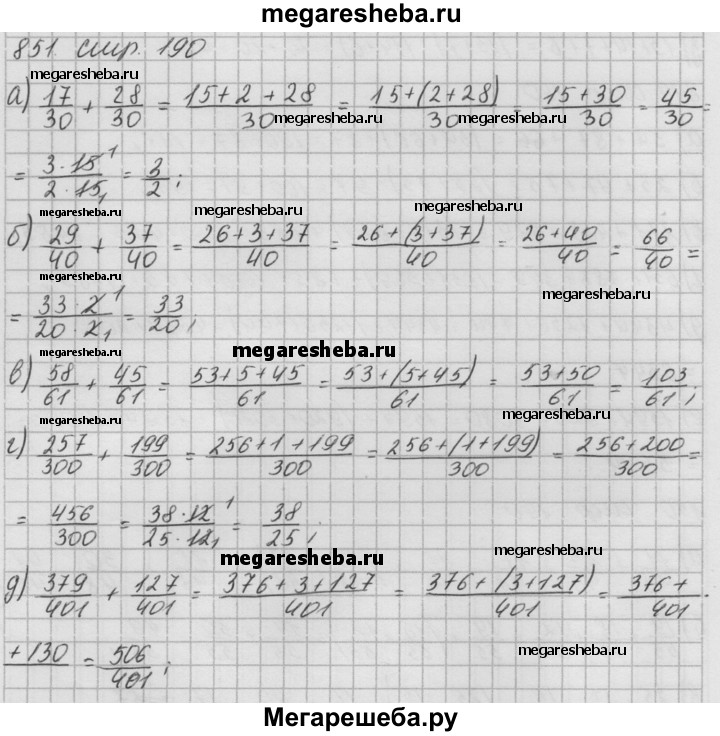 megaresheba.ru
851 стр. 190
megaresheba.ru
а) 17/30 + 28/30 = (15+2+28)/30 = (15+(2+28))/30 = (15+30)/30 = 45/30 =
megaresheba.ru megaresheba.ru megaresheba.ru
= (3·15 1)/(2·15 1) = 3/2;
megaresheba.ru megaresheba.ru megaresheba.ru
б) 29/40 + 37/40 = (26+3+37)/40 = (26+(3+37))/40 = (26+40)/40 = 66/40 =
megaresheba.ru megaresheba.ru
= (33·2 1)/(20·2 1) = 33/20;
megaresheba.ru megaresheba.ru
в) 58/61 + 45/61 = (53+5+45)/61 = (53+(5+45))/61 = (53+50)/61 = 103/61;
megaresheba.ru megaresheba.ru
г) 257/300 + 199/300 = (256+1+199)/300 = (256+(1+199))/300 = (256+200)/300 =
= 456/300 = (38·12 1)/(25·12 1) = 38/25;
megaresheba.ru megaresheba.ru
д) 379/401 + 127/401 = (376+3+127)/401 = (376+(3+127))/401 = (376+)/401
+130 = 506/401;
megaresheba.ru
Мегарешеба.ру